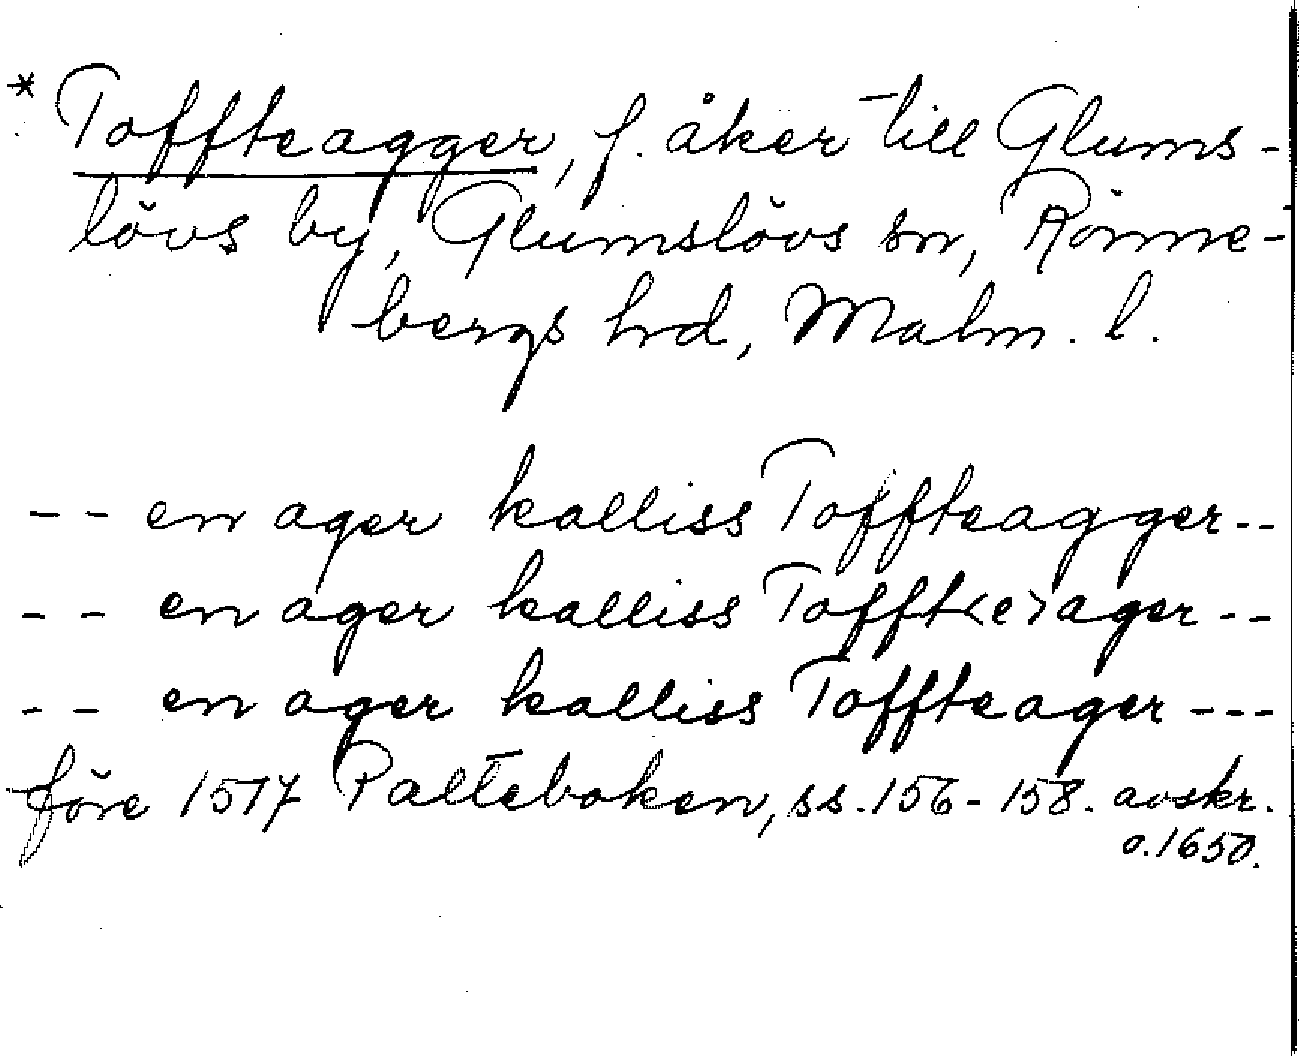 * Toffteagger, f. åker till Glums-
lövs by, Glumslövs sn, Rönne-
bergs hrd, Malm. l.
-- en ager kalliss Toffteagger--
-- en ager kalliss Tofft<e>ager--
-- en ager kalliss Toffteager---
före 1517 Palteboken, ss. 156-158. avskr.
o. 1650.